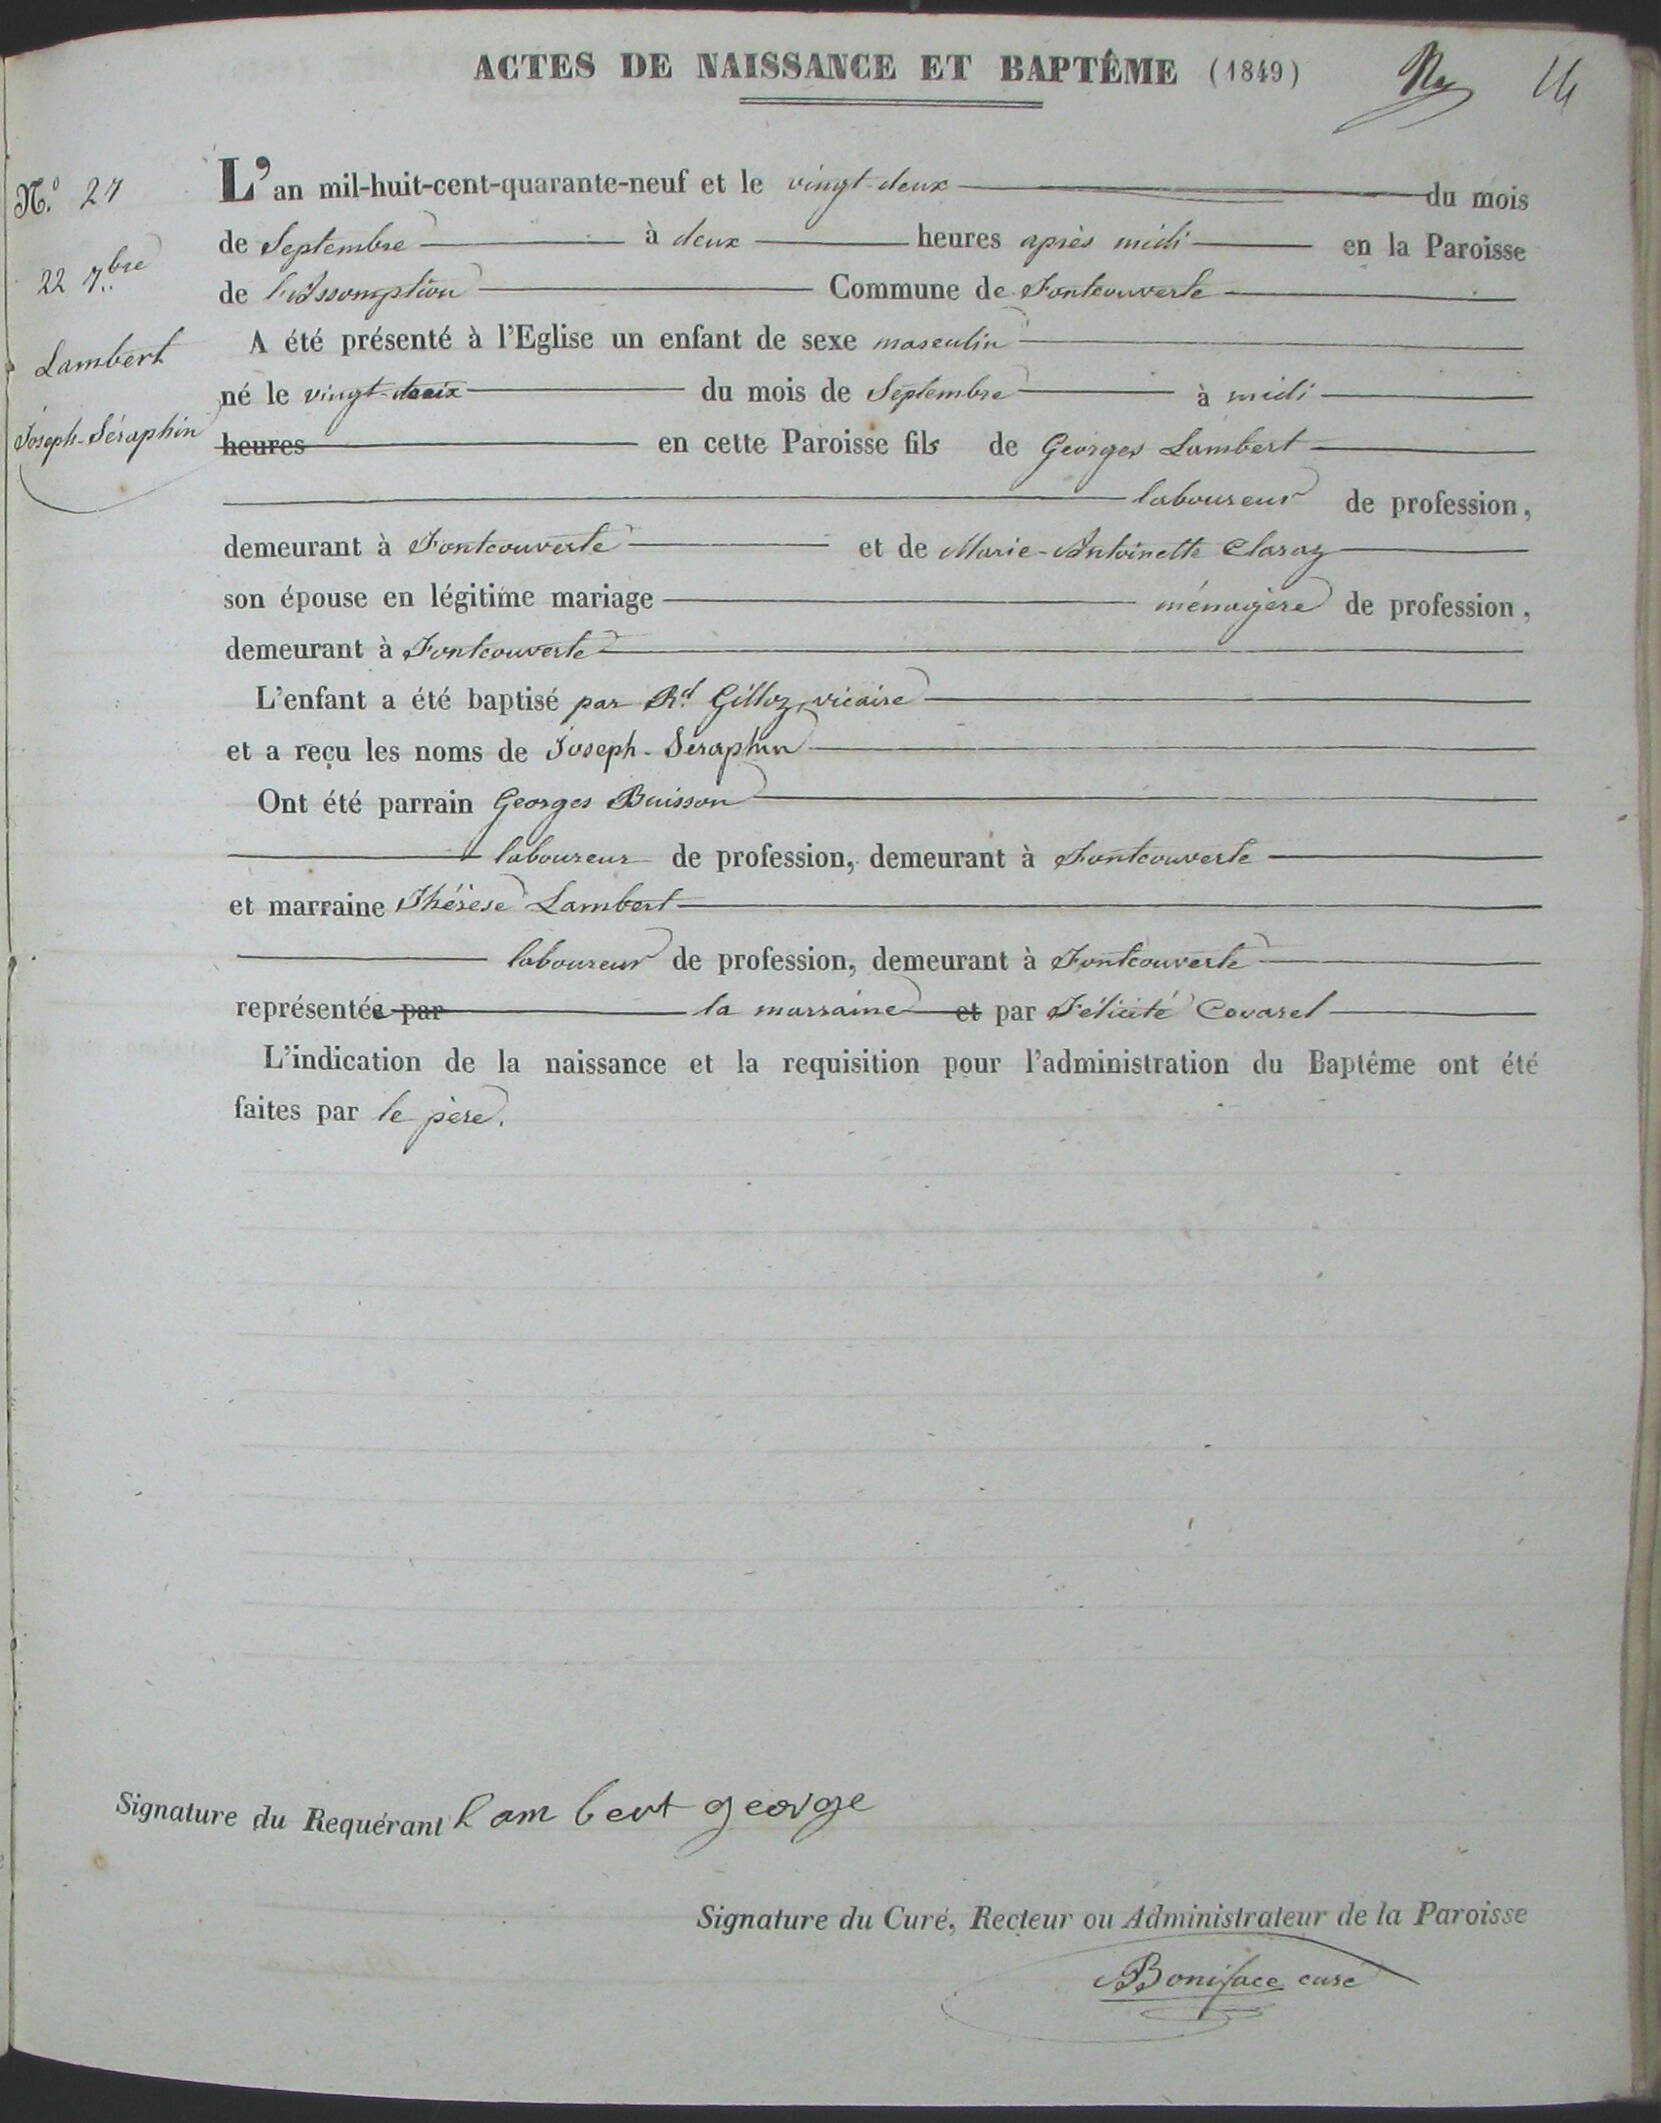 ACTES DE NAISSANCE ET BAPTÊME (1849)
14
N.º 27
22 7.bre
Lambert
Joseph-Séraphin
L'an mil-huit-cent-quarante-neuf et le vingt-deux du mois
de Septembre à deux heures après midi en la Paroisse
de l'Assomption Commune de Fontcouverte
A été présenté à l'Eglise un enfant de sexe masculin
né le vingt-deux du mois de Septembre à midi
heures en cette Paroisse fils de Georges Lambert
laboureur de profession,
demeurant à Fontcouverte et de Marie-Antoinette Claraz
son épouse en légitime mariage ménagère de profession,
demeurant à Fontcouverte
L'enfant a été baptisé par Rd Gilloz, vicaire
et a reçu les noms de Joseph-Seraphin
Ont été parrain Georges Buisson
laboureur de profession, demeurant à Fontcouverte
et marraine Thérèse Lambert
laboureur de profession, demeurant à Fontcouverte
représentée par la marraine et par Félicité Covarel
L'indication de la naissance et la requisition pour l'administration du Baptême ont été
faites par le père.
Signature du Requérant Lambert george
Signature du Curé, Recteur ou Administrateur de la Paroisse
Boniface curé